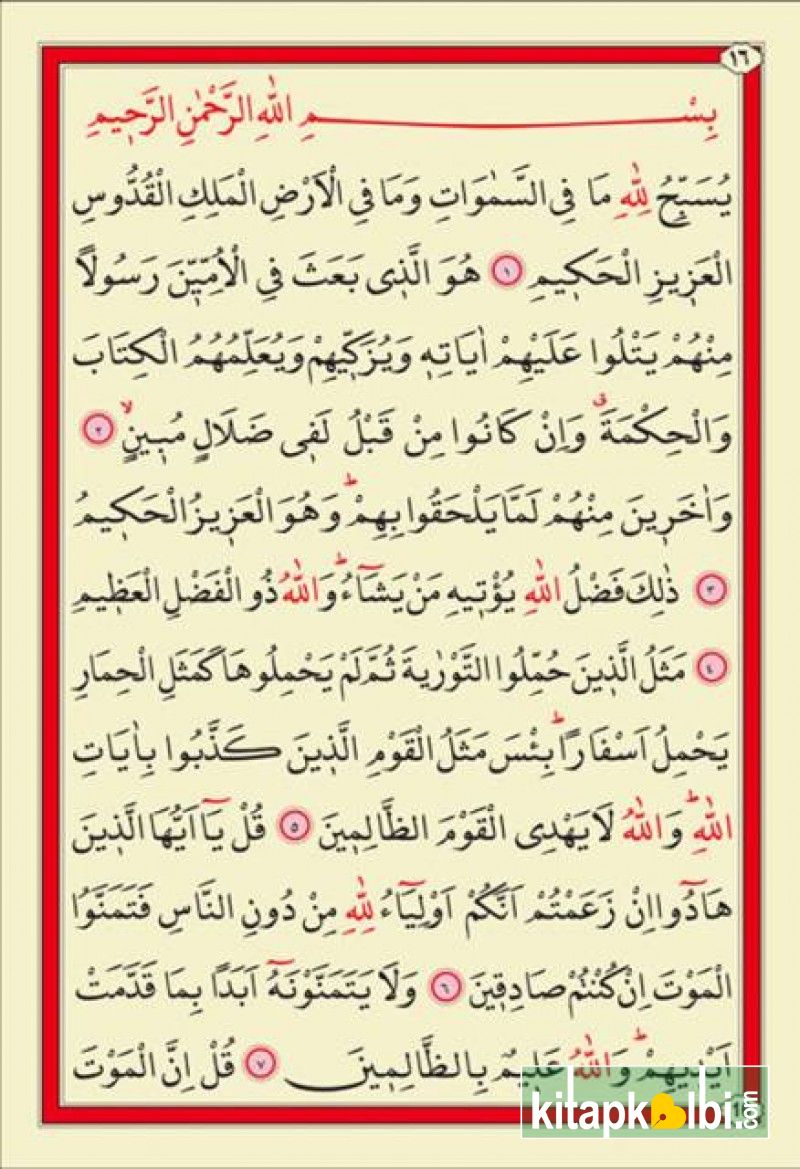 ١٦
بِسْمِ اللّٰهِ الرَّحْمٰنِ الرَّحٖيمِ
يُسَبِّحُ لِلّٰهِ مَا فِي السَّمٰوَاتِ وَمَا فِي الْاَرْضِ الْمَلِكِ الْقُدُّوسِ
الْعَزٖيزِ الْحَكٖيمِ ١ هُوَ الَّذٖى بَعَثَ فِي الْاُمِّيّٖنَ رَسُولًا
مِنْهُمْ يَتْلُوا عَلَيْهِمْ اٰيَاتِهٖ وَيُزَكّٖيهِمْ وَيُعَلِّمُهُمُ الْكِتَابَ
وَالْحِكْمَةَۗ وَاِنْ كَانُوا مِنْ قَبْلُ لَفٖى ضَلَالٍ مُبٖينٍۙ ٢
وَاٰخَرٖينَ مِنْهُمْ لَمَّا يَلْحَقُوا بِهِمْۜ وَهُوَ الْعَزٖيزُ الْحَكٖيمُ
٣ ذٰلِكَ فَضْلُ اللّٰهِ يُؤْتٖيهِ مَنْ يَشَٓاءُۜ وَاللّٰهُ ذُو الْفَضْلِ الْعَظٖيمِ
٤ مَثَلُ الَّذٖينَ حُمِّلُوا التَّوْرٰيةَ ثُمَّ لَمْ يَحْمِلُوهَا كَمَثَلِ الْحِمَارِ
يَحْمِلُ اَسْفَارًاۜ بِئْسَ مَثَلُ الْقَوْمِ الَّذٖينَ كَذَّبُوا بِاٰيَاتِ
اللّٰهِۜ وَاللّٰهُ لَا يَهْدِى الْقَوْمَ الظَّالِمٖينَ ٥ قُلْ يَٓا اَيُّهَا الَّذٖينَ
هَادُٓوا اِنْ زَعَمْتُمْ اَنَّكُمْ اَوْلِيَٓاءُ لِلّٰهِ مِنْ دُونِ النَّاسِ فَتَمَنَّوُا
الْمَوْتَ اِنْ كُنْتُمْ صَادِقٖينَ ٦ وَلَا يَتَمَنَّوْنَهُٓ اَبَدًا بِمَا قَدَّمَتْ
اَيْدٖيهِمْۜ وَاللّٰهُ عَلٖيمٌ بِالظَّالِمٖينَ ٧ قُلْ اِنَّ الْمَوْتَ
kitapkalbi.com